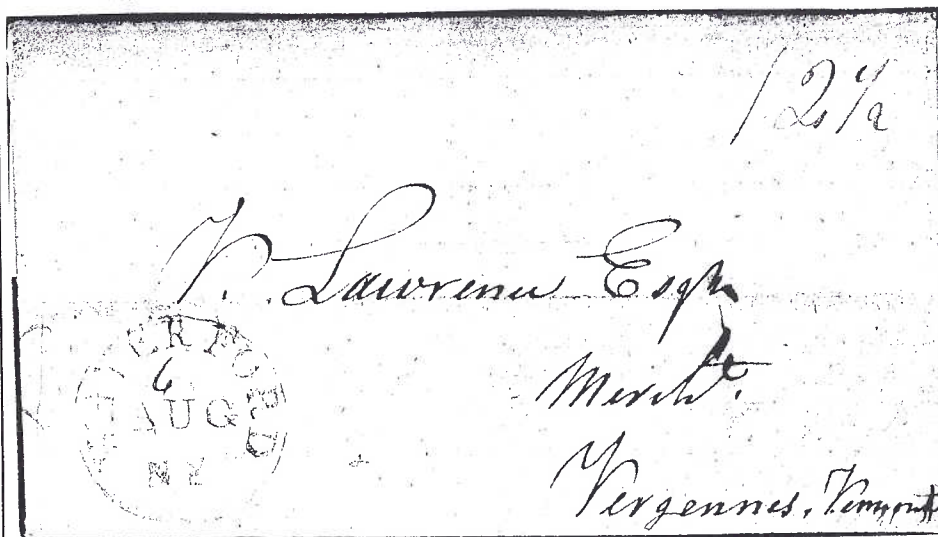 12 1/2
V. Lawrence Esqr
Mercht.
Vergennes, Vermont
WATERFORD
6
AUG
NY